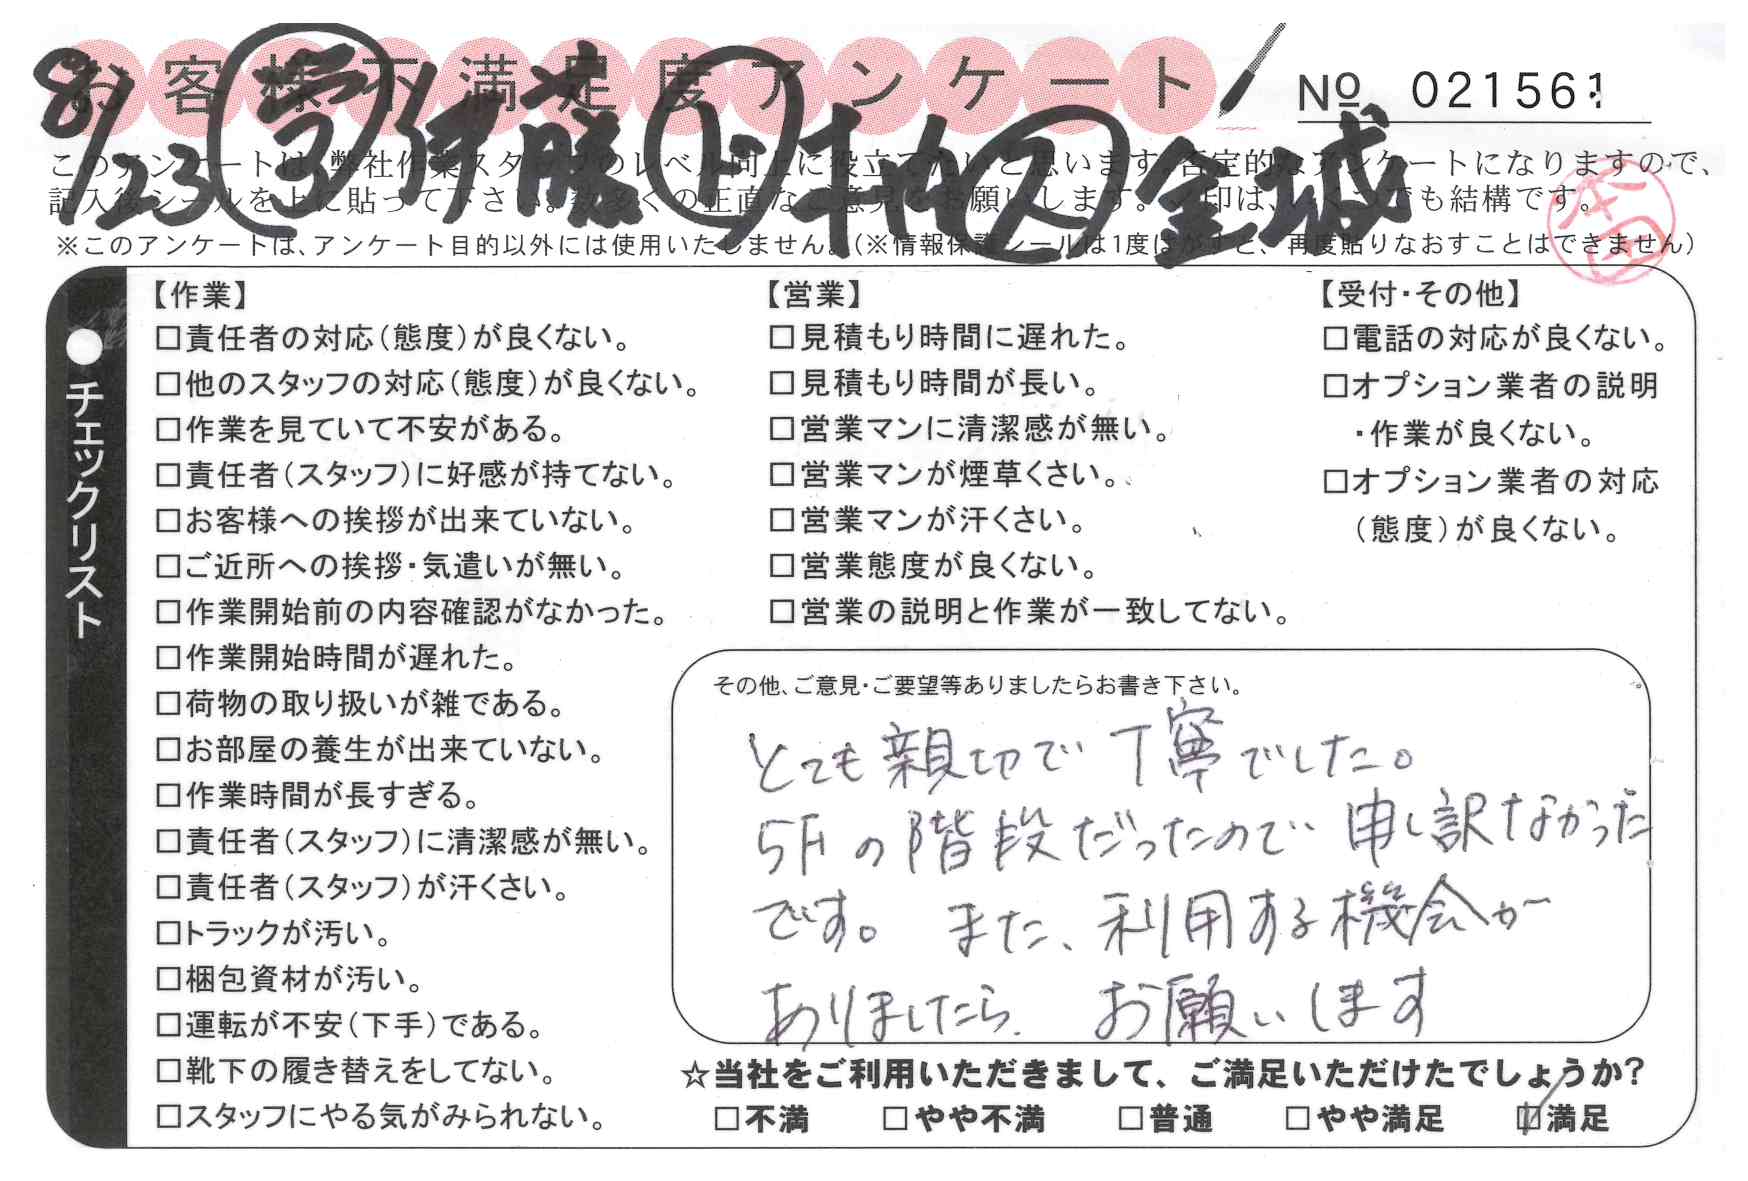 お客様不満足度アンケート
№ 021561
8/23 営 伊藤 ド 柏 ス 金城
このアンケートは、弊社作業スタッフのレベル向上に役立てたいと思います。否定的なアンケートになりますので、
記入後シールを上に貼って下さい。数多くの正直なご意見をお願いします。✓印は、いくつでも結構です。
※このアンケートは、アンケート目的以外には使用いたしません。(※情報保護シールは1度はがすと、再度貼りなおすことはできません)
チェックリスト
【作業】
□責任者の対応(態度)が良くない。
□他のスタッフの対応(態度)が良くない。
□作業を見ていて不安がある。
□責任者(スタッフ)に好感が持てない。
□お客様への挨拶が出来ていない。
□ご近所への挨拶・気遣いが無い。
□作業開始前の内容確認がなかった。
□作業開始時間が遅れた。
□荷物の取り扱いが雑である。
□お部屋の養生が出来ていない。
□作業時間が長すぎる。
□責任者(スタッフ)に清潔感が無い。
□責任者(スタッフ)が汗くさい。
□トラックが汚い。
□梱包資材が汚い。
□運転が不安(下手)である。
□靴下の履き替えをしてない。
□スタッフにやる気がみられない。
【営業】
□見積もり時間に遅れた。
□見積もり時間が長い。
□営業マンに清潔感が無い。
□営業マンが煙草くさい。
□営業マンが汗くさい。
□営業態度が良くない。
□営業の説明と作業が一致してない。
【受付・その他】
□電話の対応が良くない。
□オプション業者の説明
・作業が良くない。
□オプション業者の対応
(態度)が良くない。
その他、ご意見・ご要望等ありましたらお書き下さい。
とても親切で丁寧でした。
5Fの階段だったので申し訳なかった
です。また、利用する機会が
ありましたら、お願いします
☆当社をご利用いただきまして、ご満足いただけたでしょうか?
□不満 □やや不満 □普通 □やや満足 ☑満足